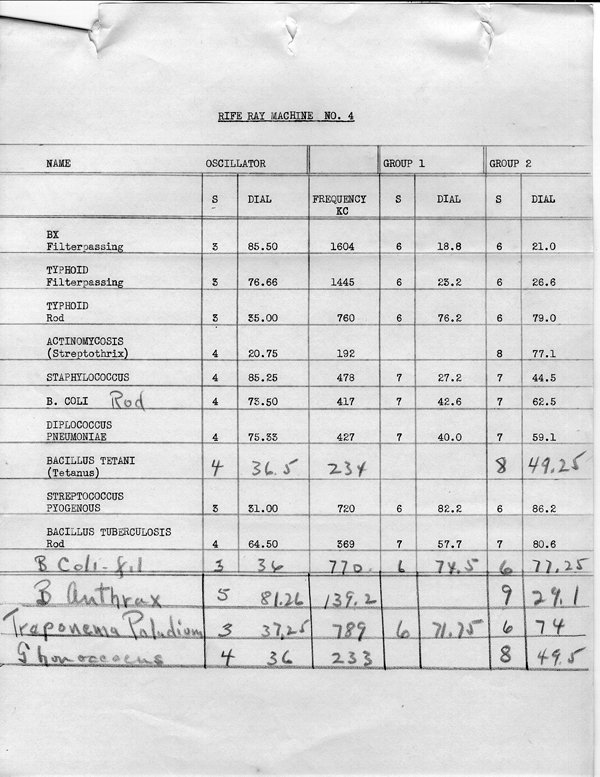 RIFE RAY MACHINE NO. 4
NAME OSCILLATOR GROUP 1 GROUP 2
S DIAL FREQUENCY S DIAL S DIAL
KC
BX
Filterpassing 3 85.50 1604 6 18.8 6 21.0
TYPHOID
Filterpassing 3 76.66 1445 6 23.2 6 26.6
TYPHOID
Rod 3 35.00 760 6 76.2 6 79.0
ACTINOMYCOSIS
(Streptothrix) 4 20.75 192 8 77.1
STAPHYLOCOCCUS 4 85.25 478 7 27.2 7 44.5
B. COLI Rod 4 73.50 417 7 42.6 7 62.5
DIPLOCOCCUS
PNEUMONIAE 4 75.33 427 7 40.0 7 59.1
BACILLUS TETANI
(Tetanus) 4 36.5 234 8 49.25
STREPTOCOCCUS
PYOGENOUS 3 31.00 720 6 82.2 6 86.2
BACILLUS TUBERCULOSIS
Rod 4 64.50 369 7 57.7 7 80.6
B Coli-fil 3 36 770. 6 74.5 6 77.25
B Anthrax 5 81.26 139.2 9 29.1
Treponema Paludium 3 37.25 789 6 71.75 6 74
Ghonoccocus 4 36 233 8 49.5